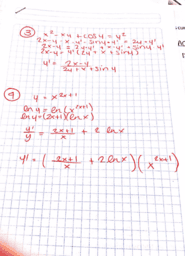 ③ x² - xy + cos y = y²
2x - y - x·y' - sin y·y' = 2y·y'
2x - y = 2y·y' + x·y' + sin y·y'
2x - y = y'(2y + x + sin y)
y' = 2x - y / 2y + x + sin y
④ y = x^(2x+1)
ln y = ln(x^(2x+1))
ln y = (2x+1)(ln x)
y'/y = 2x+1/x + 2 ln x
y' = (2x+1/x + 2 ln x)(x^(2x+1))